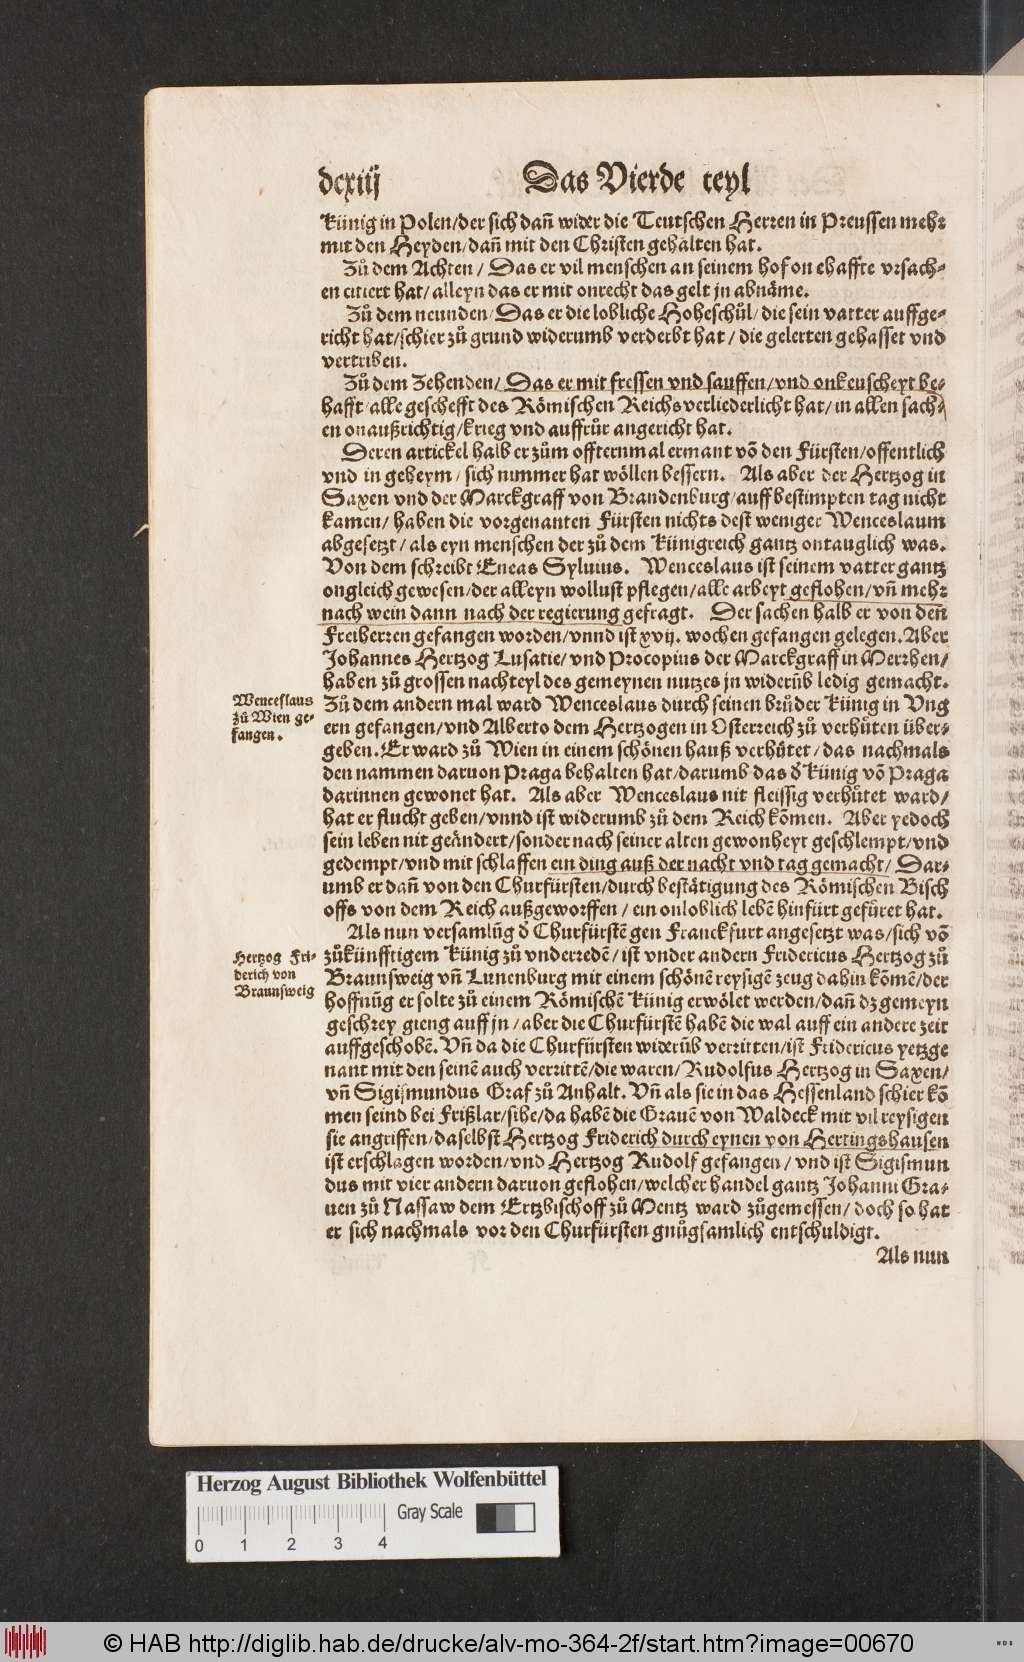 dcxiij
Das Vierde teyl
Künig in Polen/der sich dañ wider die Teutschen Herren in Preussen mehr
mit den Heyden/dañ mit den Christen gehalten hat.
Zů dem Achten / Das er vil menschen an seinem hof on ehaffte vrsach⸗
en citiert hat/alleyn das er mit onrecht das gelt jn abnäme.
Zů dem neunden/Das er die lobliche Hoheschůl/die sein vatter auffge⸗
richt hat/schier zů grund widerumb verderbt hat / die gelerten gehasset vnd
vertriben.
Zů dem Zehenden/ Das er mit fressen vnd sauffen/vnd onkeuscheyt be⸗
hafft/alle geschefft des Römischen Reichs verliederlicht hat/in allen sach⸗
en onaußrichtig/krieg vnd auffrůr angericht hat.
Deren artickel halb er zům offternmal ermant võ den Fürsten/offentlich
vnd in geheym/sich nimmer hat wöllen bessern. Als aber der Hertzog in
Saxen vnd der Marckgraff von Brandenburg/auff bestimpten tag nicht
kamen/ haben die vorgenanten Fürsten nichts dest weniger Wenceslaum
abgesetzt/als eyn menschen der zů dem künigreich gantz ontauglich was.
Von dem schreibt Eneas Syluius. Wenceslaus ist seinem vatter gantz
ongleich gewesen/der alleyn wollust pflegen/alle arbeyt geflohen/vñ mehr
nach wein dann nach der regierung gefragt. Der sachen halb er von deñ
Freiherren gefangen worden/vnnd ist xvij. wochen gefangen gelegen. Aber
Johannes Hertzog Lusatie/vnd Procopius der Marckgraff in Merrhen/
haben zů grossen nachteyl des gemeynen nutzes jn widerũb ledig gemacht.
Wenceslaus
zů Wien ge⸗
fangen.
Zů dem andern mal ward Wenceslaus durch seinen brůder Künig in Vng
ern gefangen/vnd Alberto dem Hertzogen in Osterreich zů verhůten über⸗
geben. Er ward zů Wien in einem schönen hauß verhůtet/das nachmals
den nammen daruon Praga behalten hat/darumb das ď Künig võ Praga
darinnen gewonet hat. Als aber Wenceslaus nit fleissig verhůtet ward/
hat er flucht geben/vnnd ist widerumb zů dem Reich kõmen. Aber yedoch
sein leben nit geändert/sonder nach seiner alten gewonheyt geschlempt/vnd
gedempt/vnd mit schlaffen ein ding auß der nacht vnd tag gemacht/ Dar⸗
umb er dañ von den Churfürsten/durch bestätigung des Römischen Bisch
offs von dem Reich außgeworffen / ein onloblich lebẽ hinfürt gefüret hat.
Als nun versamlũg ď Churfürstẽ gen Franckfurt angesetzt was/sich võ
Hertzog Fri⸗
derich von
Braunsweig
zůkünfftigem Künig zů vnderredẽ/ist vnder andern Fridericus Hertzog zů
Braunsweig vñ Lunenburg mit einem schönẽ reysigẽ zeug dahin kõmẽ/der
hoffnũg er solte zů einem Römischẽ Künig erwölet werden/dañ dz gemeyn
geschrey gieng auff jn/aber die Churfürstẽ habẽ die wal auff ein andere zeit
auffgeschobẽ. Vñ da die Churfürsten widerũb verritten/ist Fridericus yetzge
nant mit den seinẽ auch verrittẽ/die waren/Rudolfus Hertzog in Saxen/
vñ Sigismundus Graf zů Anhalt. Vñ als sie in das Hessenland schier kõ
men seind bei Frißlar/sihe/da habẽ die Grauẽ von Waldeck mit vil reysigen
sie angriffen/daselbst Hertzog Friderich durch eynen von Hertingshausen
ist erschlagen worden/vnd Hertzog Rudolf gefangen/ vnd ist Sigismun
dus mit vier andern daruon geflohen/welcher handel gantz Johanni Gra⸗
uen zů Nassaw dem Ertzbischoff zů Mentz ward zůgemessen/doch so hat
er sich nachmals vor den Churfürsten gnůgsamlich entschuldigt.
Als nun
Herzog August Bibliothek Wolfenbüttel
Gray Scale
0 1 2 3 4
© HAB http://diglib.hab.de/drucke/alv-mo-364-2f/start.htm?image=00670